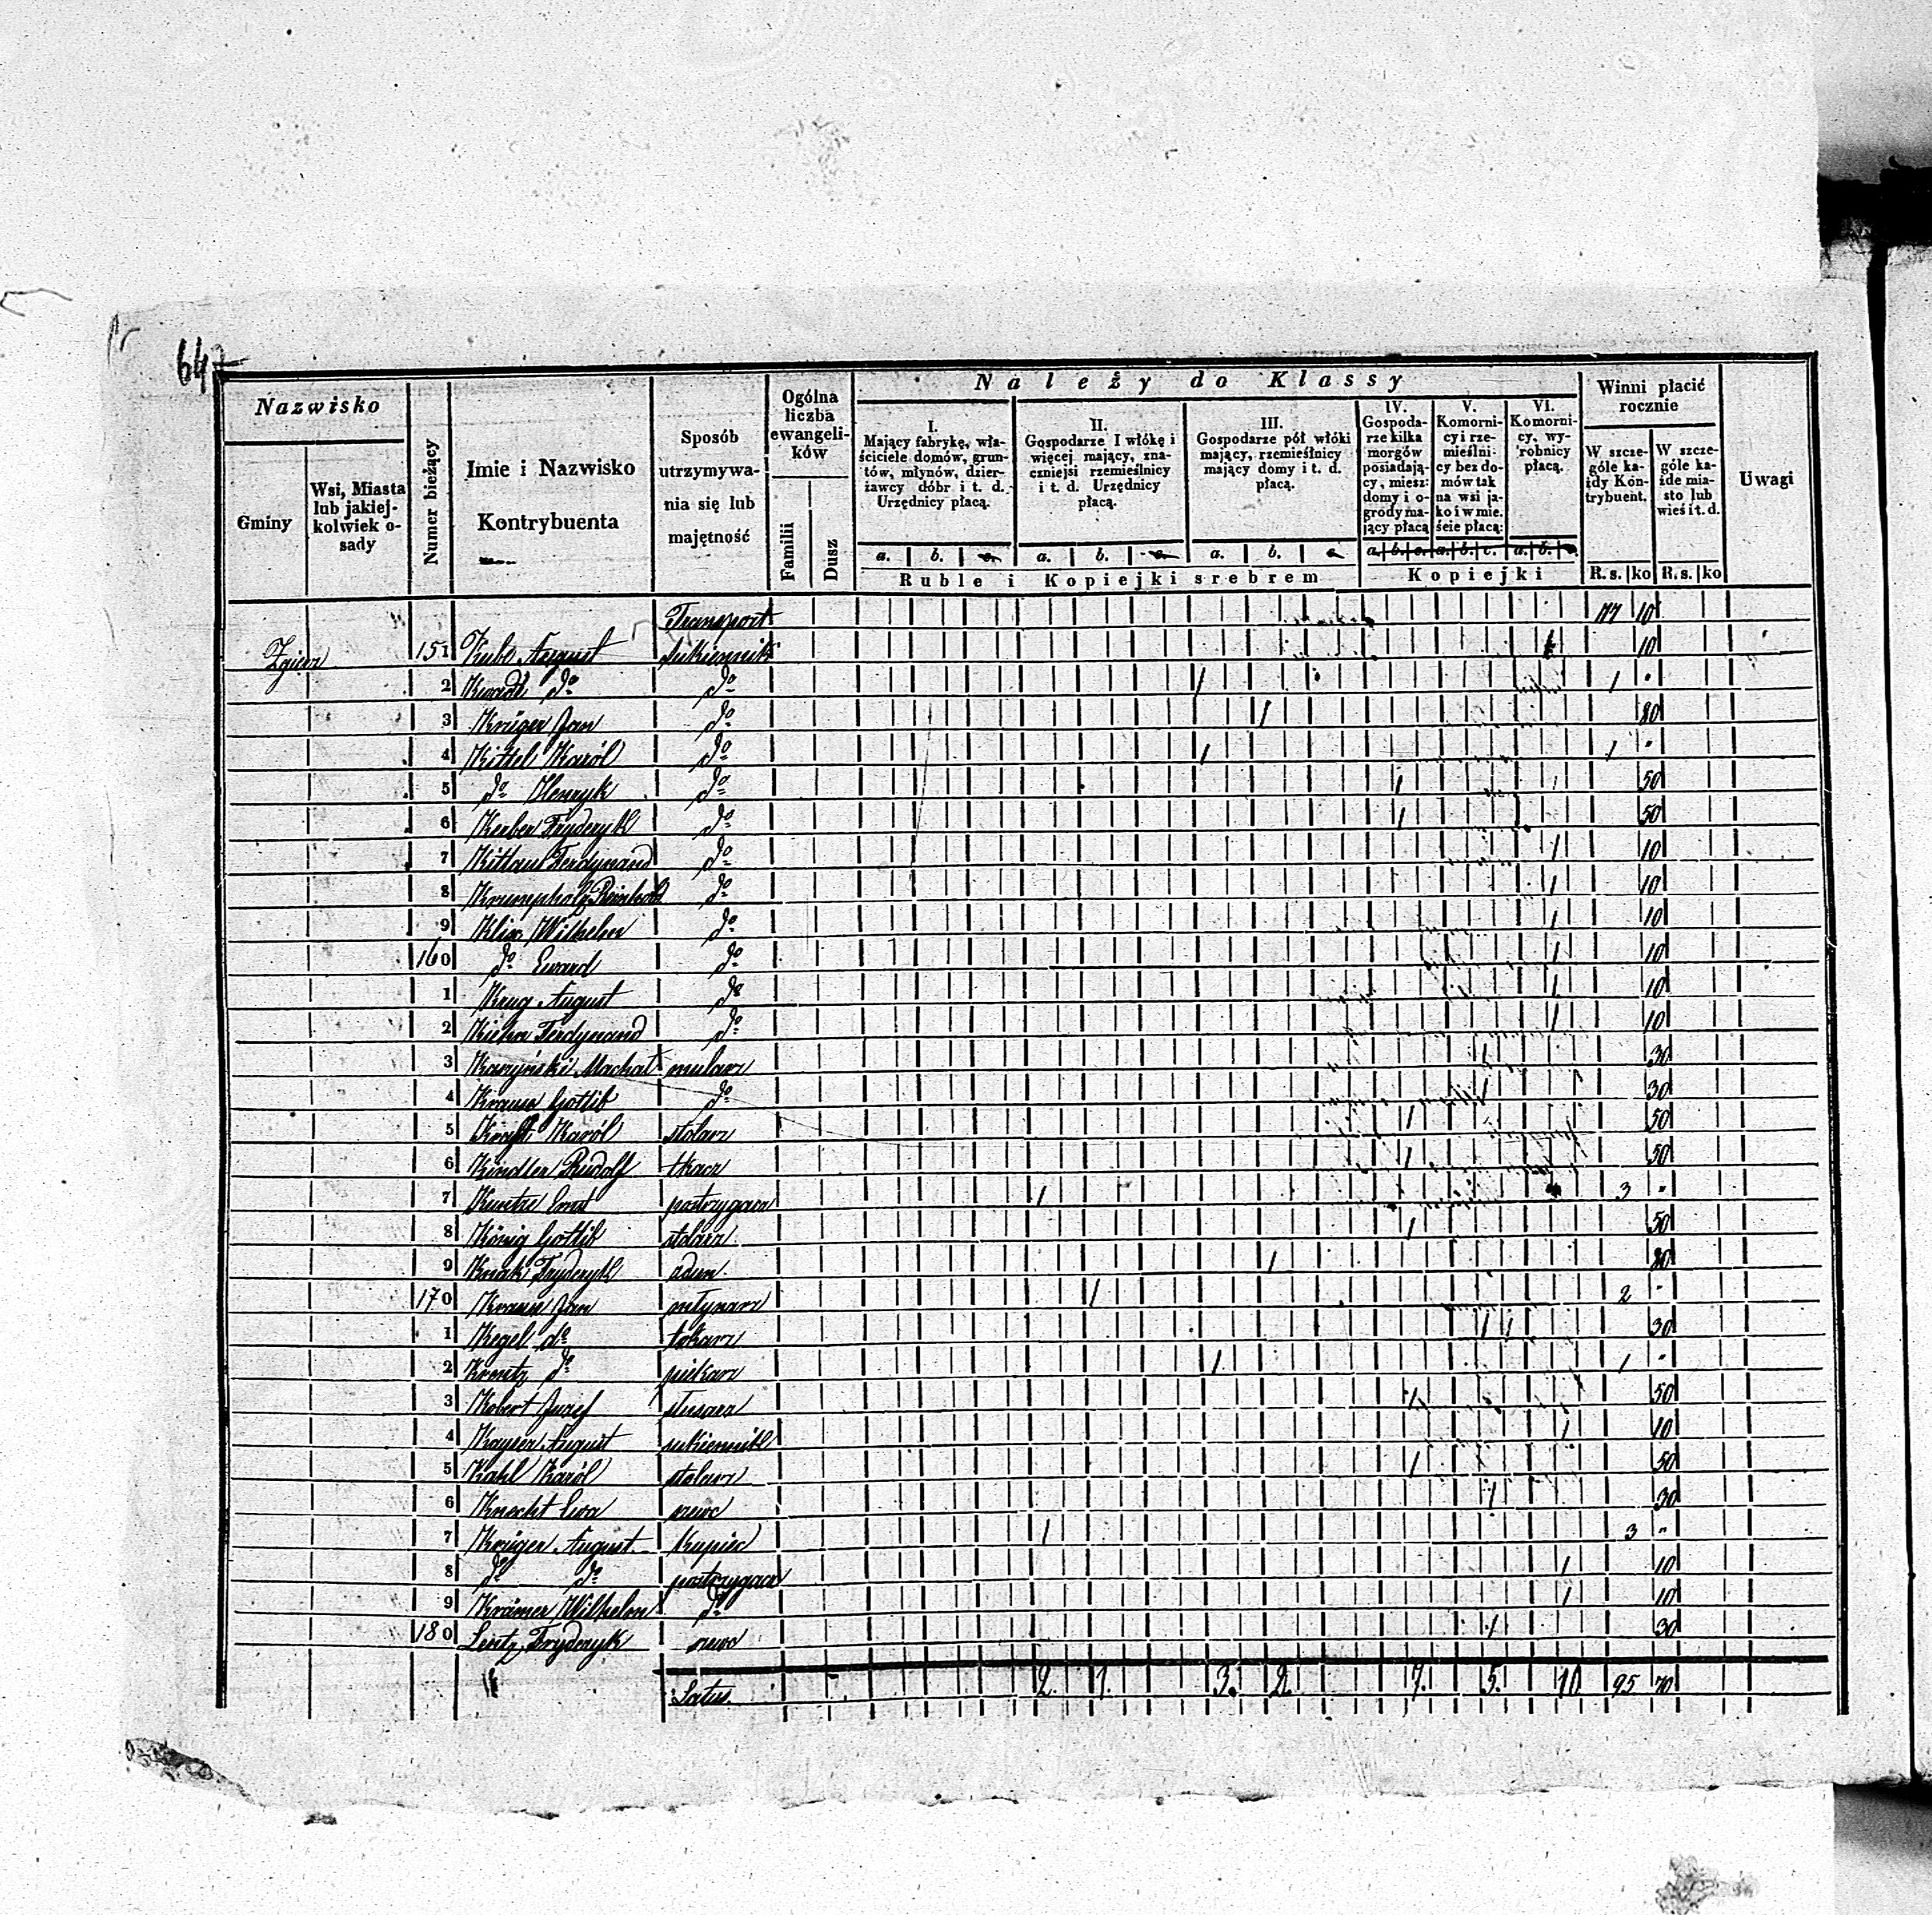 64
Nazwisko
Gminy
Wsi, Miasta lub jakiej-kolwiek o-sady
Numer bieżący
Imie i Nazwisko Kontrybuenta
Sposób utrzymywa-nia się lub majętność
Ogólna liczba ewangeli-ków
Familii
Dusz
Należy do Klassy
I. Mający fabrykę, wła-ściciele domów, grun-tów, młynów, dzier-żawcy dóbr i t. d. Urzędnicy płacą.
II. Gospodarze I włókę i więcej mający, zna-czniejsi rzemieślnicy i t. d. Urzędnicy płacą.
III. Gospodarze pół włóki mający, rzemieślnicy mający domy i t. d. płacą.
IV. Gospoda-rze kilka morgów posiadają-cy, miesz: domy i o-grody ma-jący płacą
V. Komorni-cy i rze-mieślni-cy bez do-mów tak na wsi ja-ko i w mie.ście płacą:
VI. Komorni-cy, wy-robnicy płacą.
Winni płacić rocznie
W szcze-góle ka-żdy Kon-trybuent.
W szcze-góle ka-żde mia-sto lub wieś i t. d.
Uwagi
a. b. c. a. b. c. a. b. c. a. b. c. a. b. c. a. b. c.
Ruble i Kopiejki srebrem
Kopiejki
R.s. ko R.s. ko
Transport 77 10
Zgierz 151 Kube August sukiennik 1 10
2 Kwadt do do 1 1 "
3 Krüger Jan do 1 80
4 Kittel Karól do 1 1 "
5 do Henryk do 1 50
6 Kerber Fryderyk do 1 50
7 Kittlaus Ferdynand do 1 10
8 Krumpholz Reinhold do 1 10
9 Klix Wilhelm do 1 10
160 do Edward do 1 10
1 Krug August do 1 10
2 Kiehn Ferdynand do 1 10
3 mularz 1 30
4 Krause Gottlib do 1 30
5 Kraft Karól stolarz 1 50
6 Kindler Rudolf tkacz 1 50
7 Kuntze Ernst postrzygacz 1 3 "
8 König Gottlib stolarz 1 50
9 Knak Fryderyk zdun 1 80
170 Krause Jan młynarz 1 2 "
1 Kegel do tokarz 1 30
2 Kreutz do piekarz 1 1 "
3 Kobert Juzef ślusarz 1 50
4 Kayser August sukiennik 1 10
5 Kahl Karól stolarz 1 50
6 Knecht Ewa szewc 1 30
7 Krüger August kupiec 1 3 "
8 do do postrzygacz 1 10
9 Krämer Wilhelm do 1 10
180 Lentz Fryderyk szewc 1 30
Latus 2. 1. 3. 2. 7. 5. 10 95 70